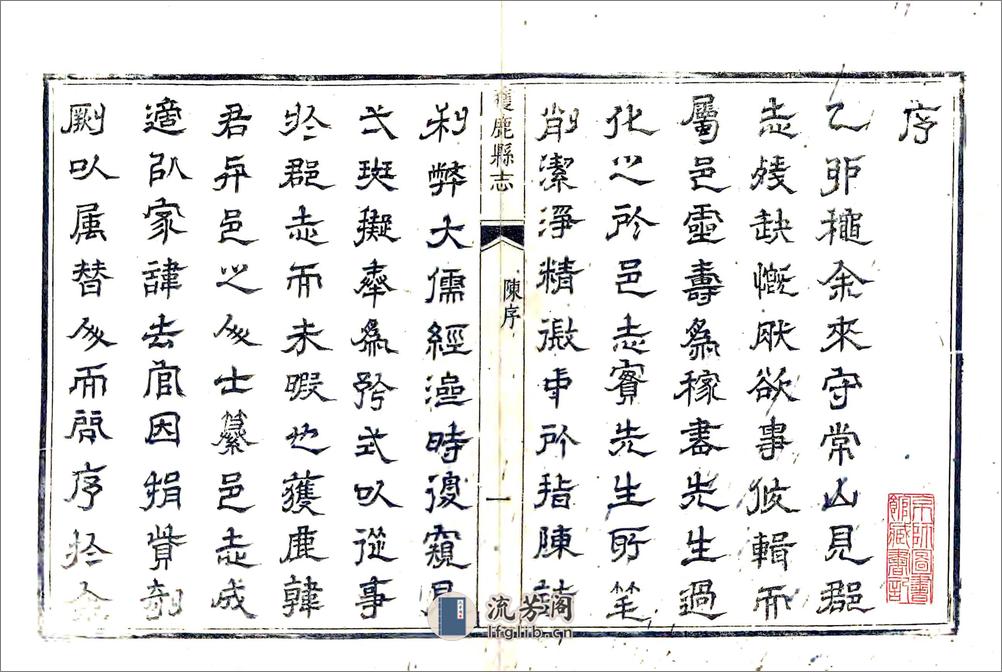 序
乙卯穐余來守常山見郡
志殘缺慨肰欲事修輯而
屬邑靈壽為稼書先生過
化之所邑志實先生所笔
削潔淨精微中所指陳諸
獲鹿縣志
陳序
一
利弊大儒經濟時復窺見
弌斑擬奉為矜式以從事
於郡志而未暇也獲鹿韓
君并邑之人士纂邑志成
適以家諱去官因捐貲剞
劂以属替人而問序於余
京師圖書
館藏書記
流芳阁
lfglib.cn